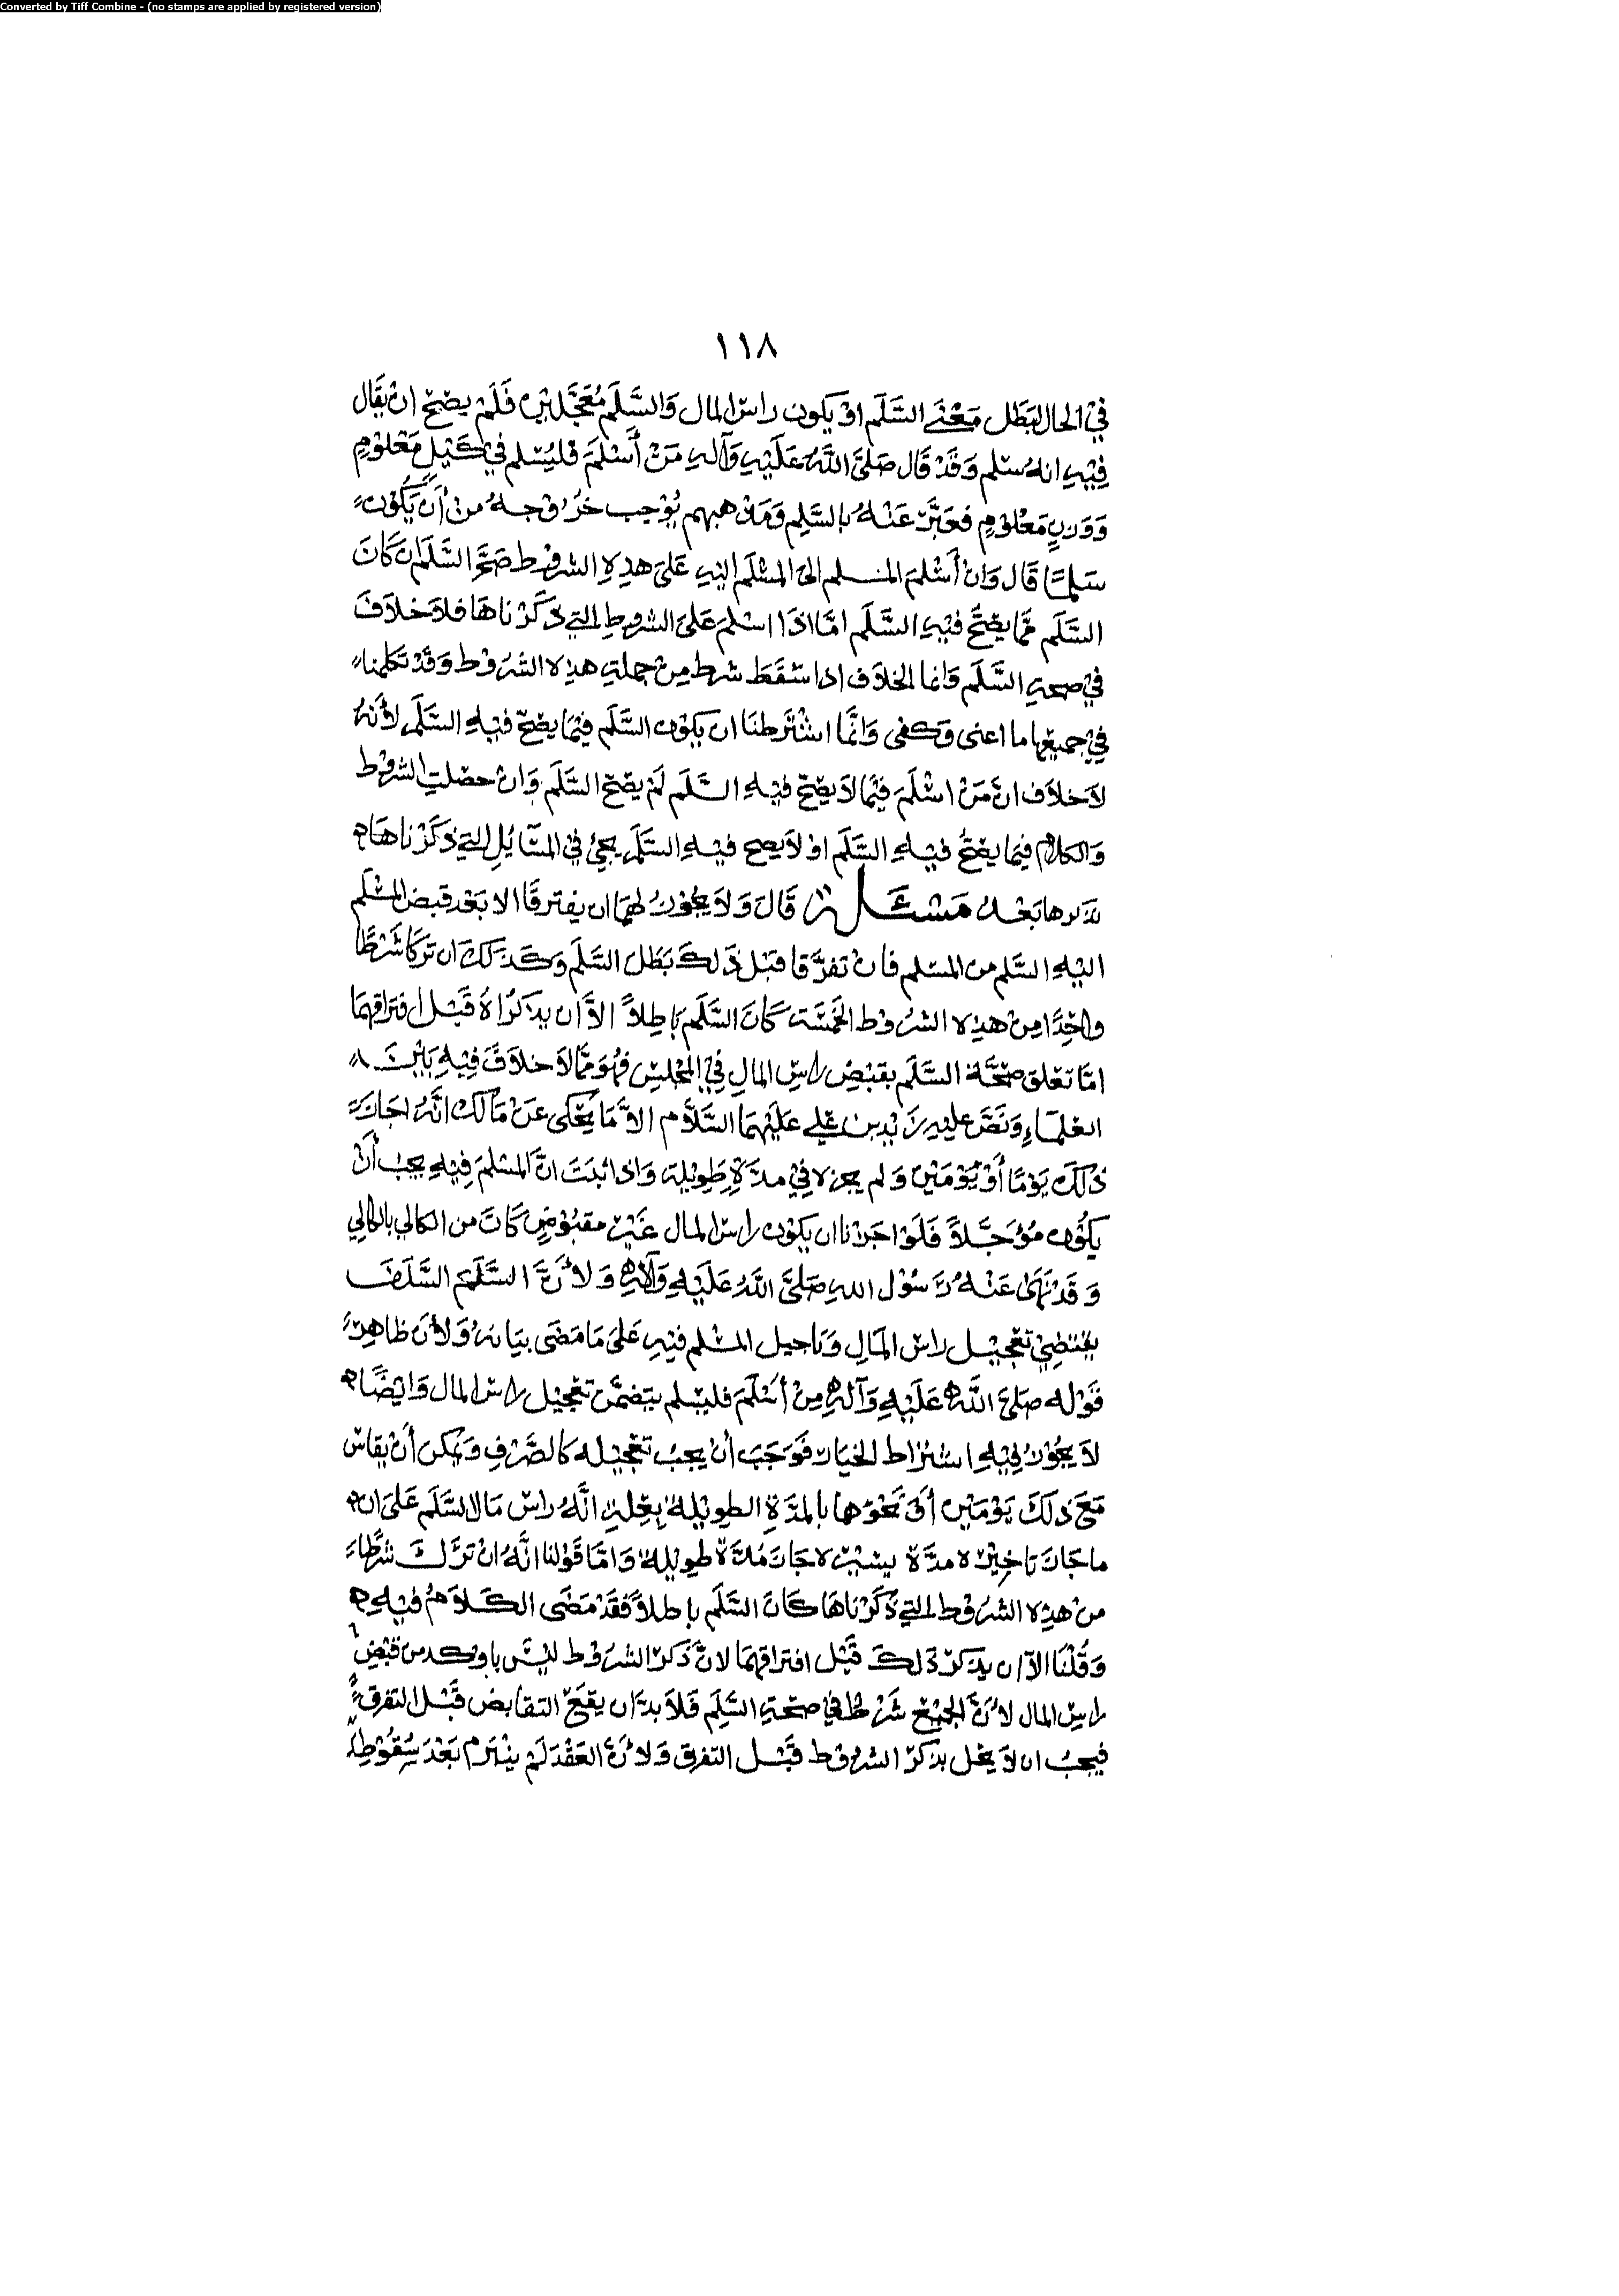 Converted by Tiff Combine - (no stamps are applied by registered version)
١١٨
في الحال لبَطَل مَعْنَى السَّلَم اوْ يكون راس المال وَالسَّلَم مُعَجَّلَيْنِ فَلَمْ يصَحّ انْ يقَال
فِيْهِ انهُ سَلم وَقَدْ قَال صَلَّى اللَّهُ عَلَيْهِ وَآلهِ مَنْ أَسْلَمَ فليُسْلم في كَيْلٍ مَعْلوْمٍ
وَوَزنٍ مَعْلوْمٍ فعَبَّرَ عَنْهُ بالسَّلِم وَمَذهبهم يُوْجب خرُوْجهُ منْ أَنْ يَكُوْنَ
سَلماً قَال وَانْ أسْلمَ المسلم الى المسْلَم اليهِ عَلىَ هذِهِ الشروْط صَحَّ السَّلَم ان كَانَ
السَّلَم مِمَّا يصَحَّ فيْهِ السَّلَم امَّا اذَا اسْلمَ عَلىَ الشروطِ التي ذكَرْناهَا فلاَ خلاَفَ
فيْ صحةِ السَّلَم وَانما الخلاَف اذا سَقَطَ شرط مِنْ جملةِ هذِه الشرُوْط وَقَدْ تكلمنا
فِيْ جميعهَا ما اغنى وَكفى وَانَّما اشْتَرطنَا ان يكوْن السَّلَم فيْمَا يصَحّ فيْهِ السَّلَم لأنهُ
لاَ خلاَف انَّ مَنْ اسْلَمَ فيْمَا لاَ يصَحّ فيْهِ السَّلَم لَمْ يصَحّ السَّلَم وَانْ حصَلت الشروْط
وَالكلام فيْمَا يصَحُّ فيْهِ السَّلَم اوْ لاَ يصح فيْهِ السَّلَم يجيُ فيْ المسَآئِلِ التيْ ذكَرْناهَا
بعْدُ مَسْئَلة قَالَ وَلاَ يجُوْزُ لهمَا ان يفترقَا الا بَعْد قبض المسْلَم
اليْهِ السَّلم من المسْلم فانْ تفرَّقا قبْل ذَلكَ بَطَلَ السَّلَم وَكذَلكَ ان ترَكَا شَرْطاً
واحِدًا مِنْ هَذِه الشرُوط الخمسَة كَانَ السَّلَم باطِلاً الاَّ ان يذكرُاهُ قَبْل افترَاقهمَا
امَّا تعَلق صحَّة السَّلَم بقبْضِ راسِ المالِ فيْ المجْلسِ فهُوَ مِمَّا لاَ خلاَفَ فِيْهِ بَيْنَ
العُلمَاءِ وَنَصَّ عليْهِ زَيْد بن عَلي عَليْهِمَا السَّلاَم الاَّ مَا يحْكى عَنْ مَالكٍ انَّهُ اجَازَ
ذلَكَ يَوْمًا أوْ يَوْمَيْنِ وَلم يجزه فيْ مدَّةٍ طَوِيْلة وَاذا ثبَتَ انَّ المسْلمَ فيْهِ يجبُ أَنْ
يكُوْن مُؤَجَّلاً فَلَوْ اجَزْنا ان يكوْن راس المال غَيْر مقبُوْضٍ كَانَ من الكالي بالكالي
وَقَدْ نَهَى عَنْهُ رَسُوْل اللهِ صَلَّى اللَّهُ عَلَيْهِ وَآلهِ وَلأنَّ السَّلَم السَّلَفَ
يقْتضِيْ تعْجيْل راسِ المالِ وَتاجيل المسْلم فيْهِ عَلىَ مَا مَضَى بيَانهُ وَلأنَّ ظاهِرَ
قَوْله صَلىَ اللَّهُ عَلَيْهِ وَآلهِ مِنْ أسْلَمَ فليسْلم يتضمَّن تعْجيْل راس المال وَايْضًا
لاَ يجُوْزُ فيْهِ اشتراط الخيَار فوَجَبَ أنْ يجبُ تعْجيْله كَالصَّرْفِ وَيمكن أنْ يقاسَ
مَعَ ذلَكَ يَوْمَيْنِ أوْ نَحْوُهَا بالمدَّةِ الطويْلة بعِلةِ انَّهُ راس مَال السَّلَم عَلىَ ان
ما جَازَ تاخِيْرُه مدَّة يسيْرة جَازَ مُدَّة طوِيْلة وَامَّا قَوْلنا انَّهُ انْ ترَكَ شَرْطًا
من هَذِه الشرُوْط التيْ ذَكَرْناهَا كَانَ السَّلَم باطلاً فقَدْ مَضَى الكَلاَمُ فيْهِ
وَقُلْنَا الاَّ ان يذكرَ ذَلكَ قَبْل افتراقهمَا لأنَّ ذكرَ الشرُوْط ليْسَ باوكد من قبْضِ
راسِ المال لأنَّ الجَميْعَ شَرْط في صحَّةِ السَّلَم فَلاَ بدَّ ان يقعَ التقابض قَبْل التفرقِ
فيجبُ ان لاَ يخل بذكرَ الشروْط قَبْل التفرق وَلأنَّ العَقْدَ لَمْ ينْبَرم بَعْدَ سُقُوْطِ